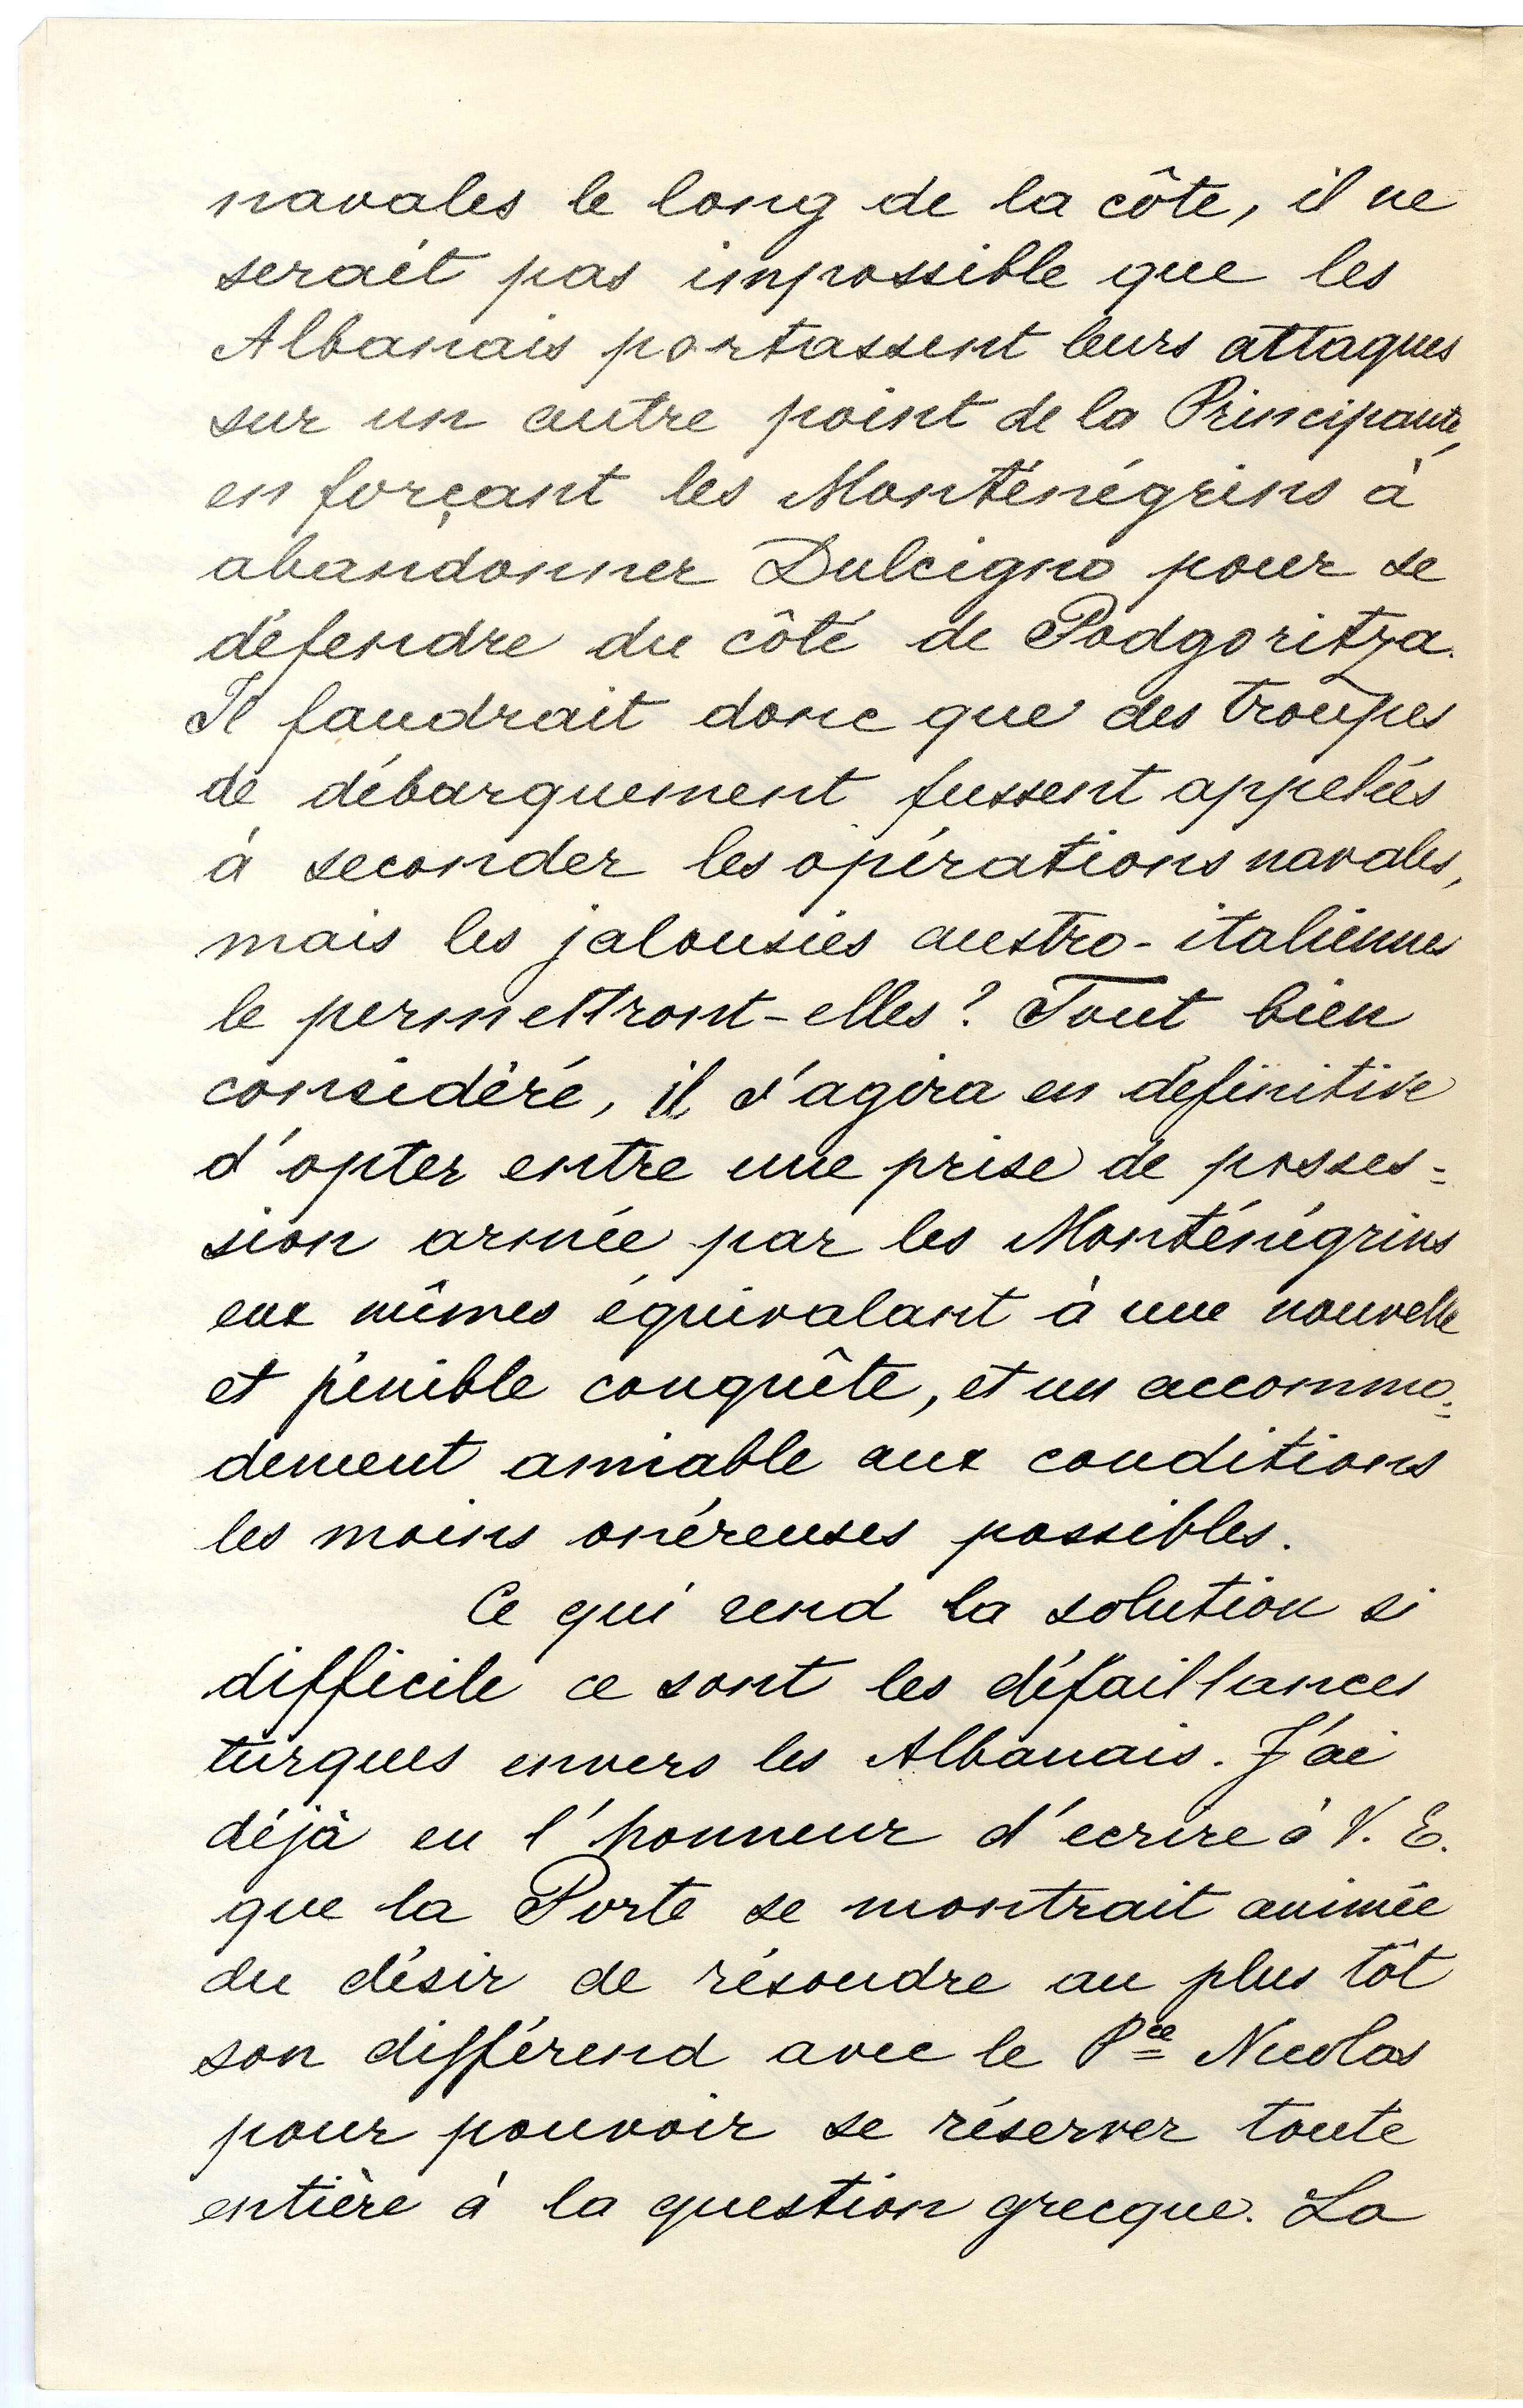 navales le long de la côte, il ne
serait pas impossible que les
Albanais portassent leurs attaques
sur un autre point de la Principauté,
en forçant les Monténégrins à
abandonner Dulcigno pour se
défendre du côté de Podgoritza.
Il faudrait donc que des troupes
de débarquement fussent appelées
à seconder les opérations navales,
mais les jalousies austro-italiennes
le permettront-elles? Tout bien
considéré, il s'agira en définitive
d'opter entre une prise de posses=
sion armée par les Monténégrins
eux mêmes équivalant à une nouvelle
et pénible conquête, et un accommo=
dement amiable aux conditions
les moins onéreuses possibles.
Ce qui rend la solution si
difficile ce sont les défaillances
turques envers les Albanais. J'ai
déjà eu l'honneur d'écrire à V. E.
que la Porte se montrait animée
du désir de résoudre au plus tôt
son différend avec le Pce Nicolas
pour pouvoir se réserver toute
entière à la question grecque. La